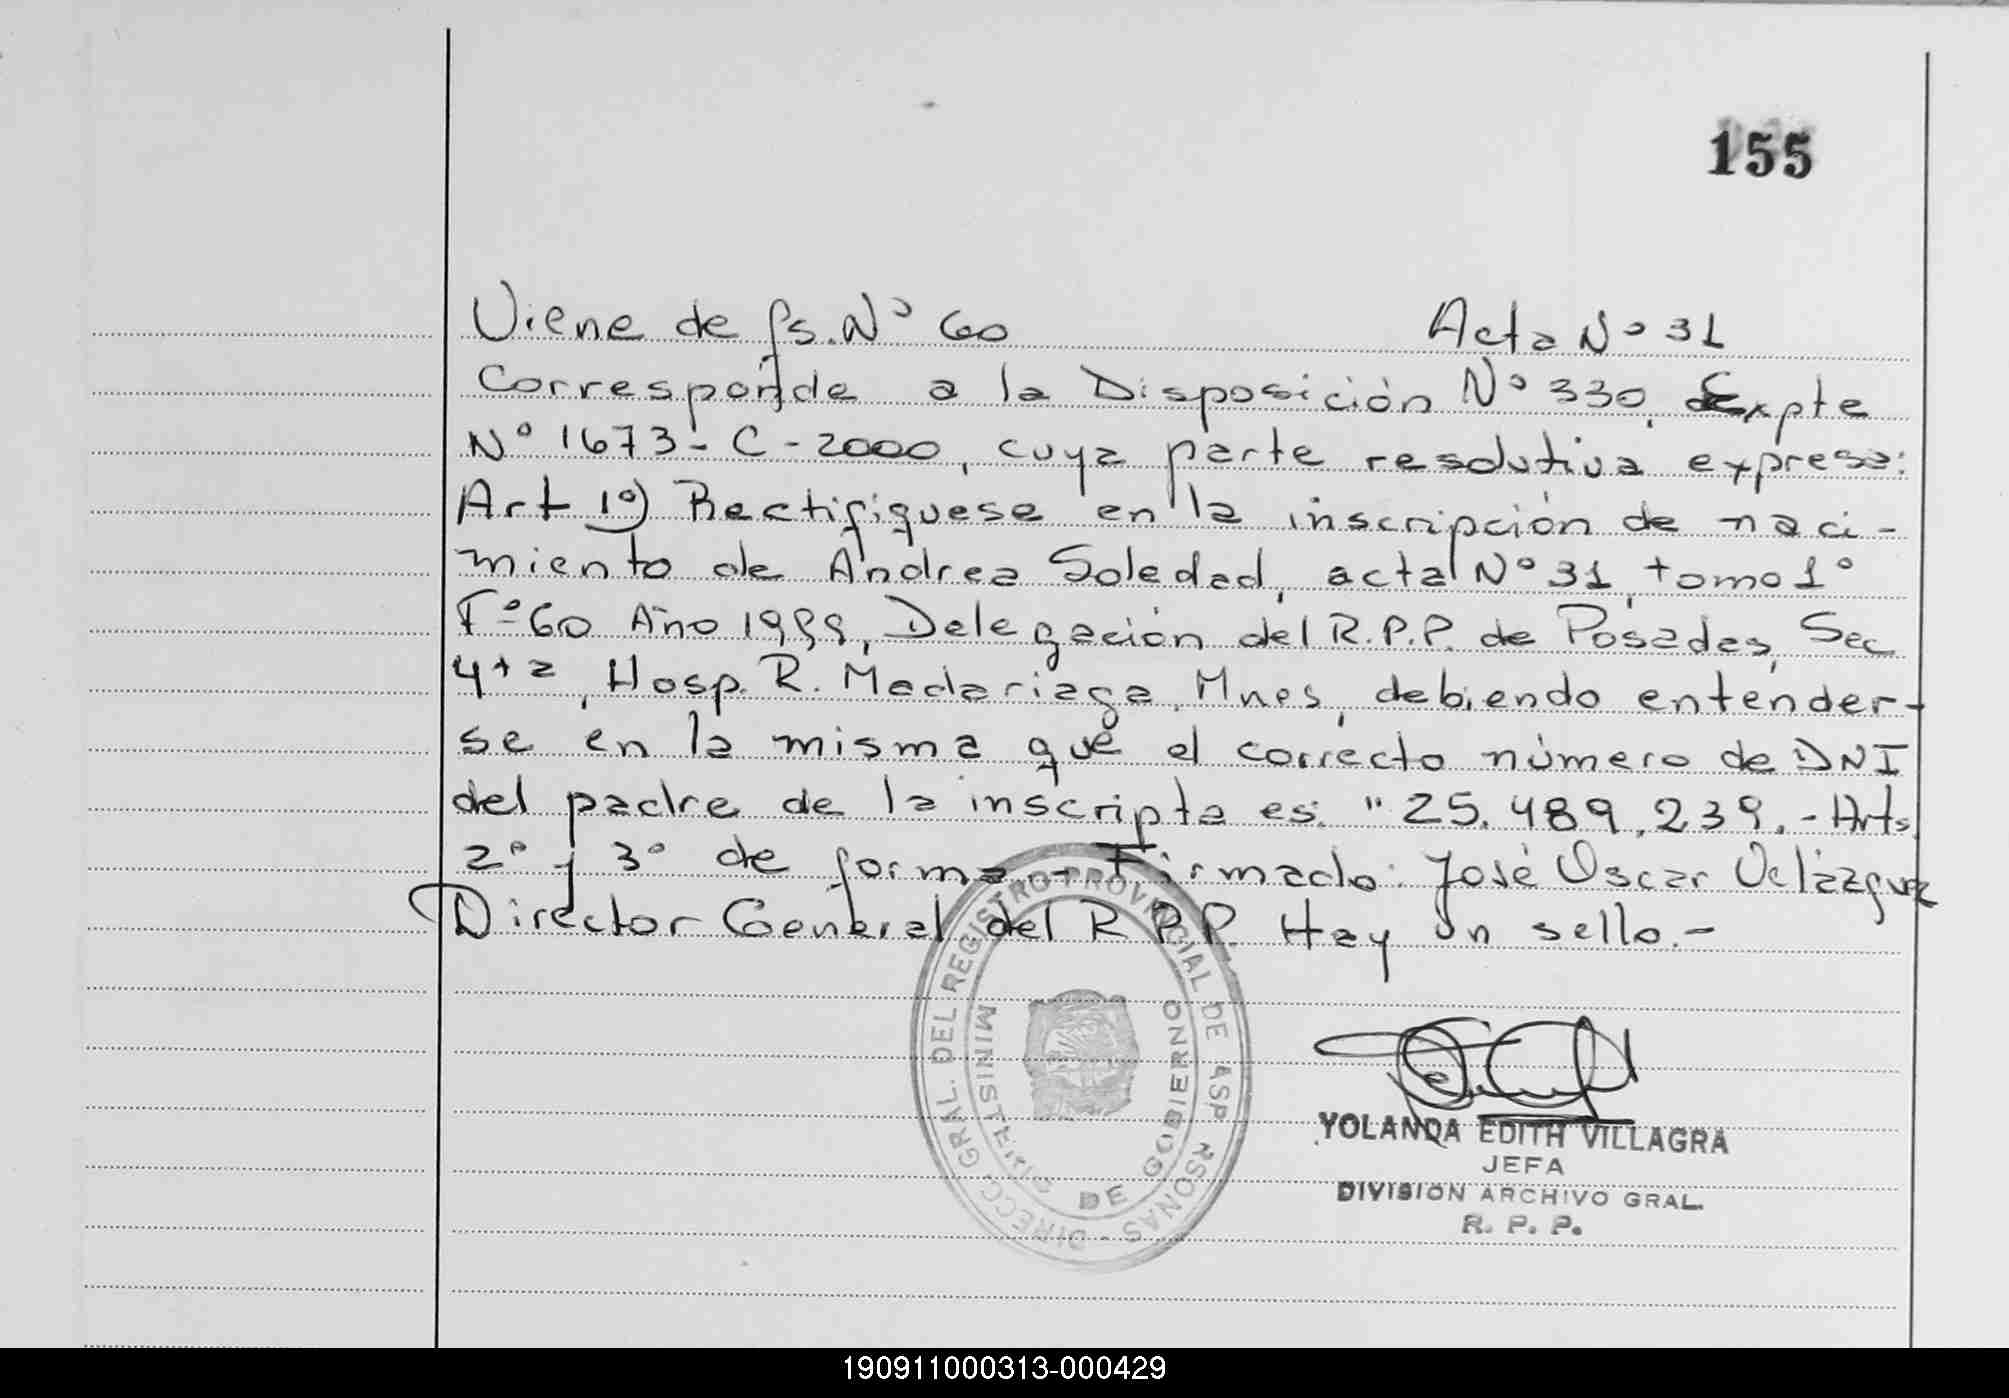 155
Viene de fs. Nº 60 Acta Nº 31
Corresponde a la Disposición Nº 330, Expte
Nº 1673-C-2000, cuya parte resolutiva expresa:
Art 1º) Rectifiquese en la inscripción de naci-
miento de Andrea Soledad, acta Nº 31, tomo 1º
Fº 60 Año 1999, Delegación del R.P.P. de Posadas, Sec
4ta, Hosp. R. Madariaga, Mnes, debiendo entender-
se en la misma que el correcto número de DNI
del padre de la inscripta es: "25.489.239.- Arts.
2º y 3º de forma.- Firmado: José Oscar Velázquez
Director General del R.P.P. Hay un sello.-
DIRECC. GRAL. DEL REGISTRO PROVINCIAL DE LAS PERSONAS -
MINISTERIO DE GOBIERNO
YOLANDA EDITH VILLAGRA
JEFA
DIVISION ARCHIVO GRAL.
R. P. P.
190911000313-000429